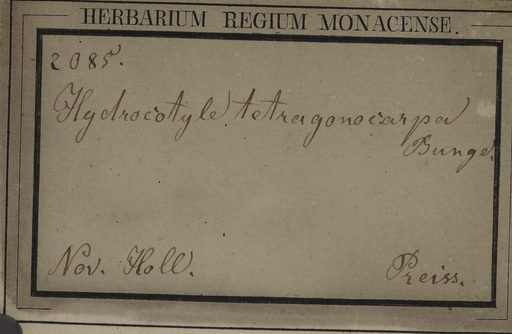 HERBARIUM REGIUM MONACENSE.
2085.
Hydrocotyle tetragonocarpa
Bunge.
Nov. Holl.
Preiss.